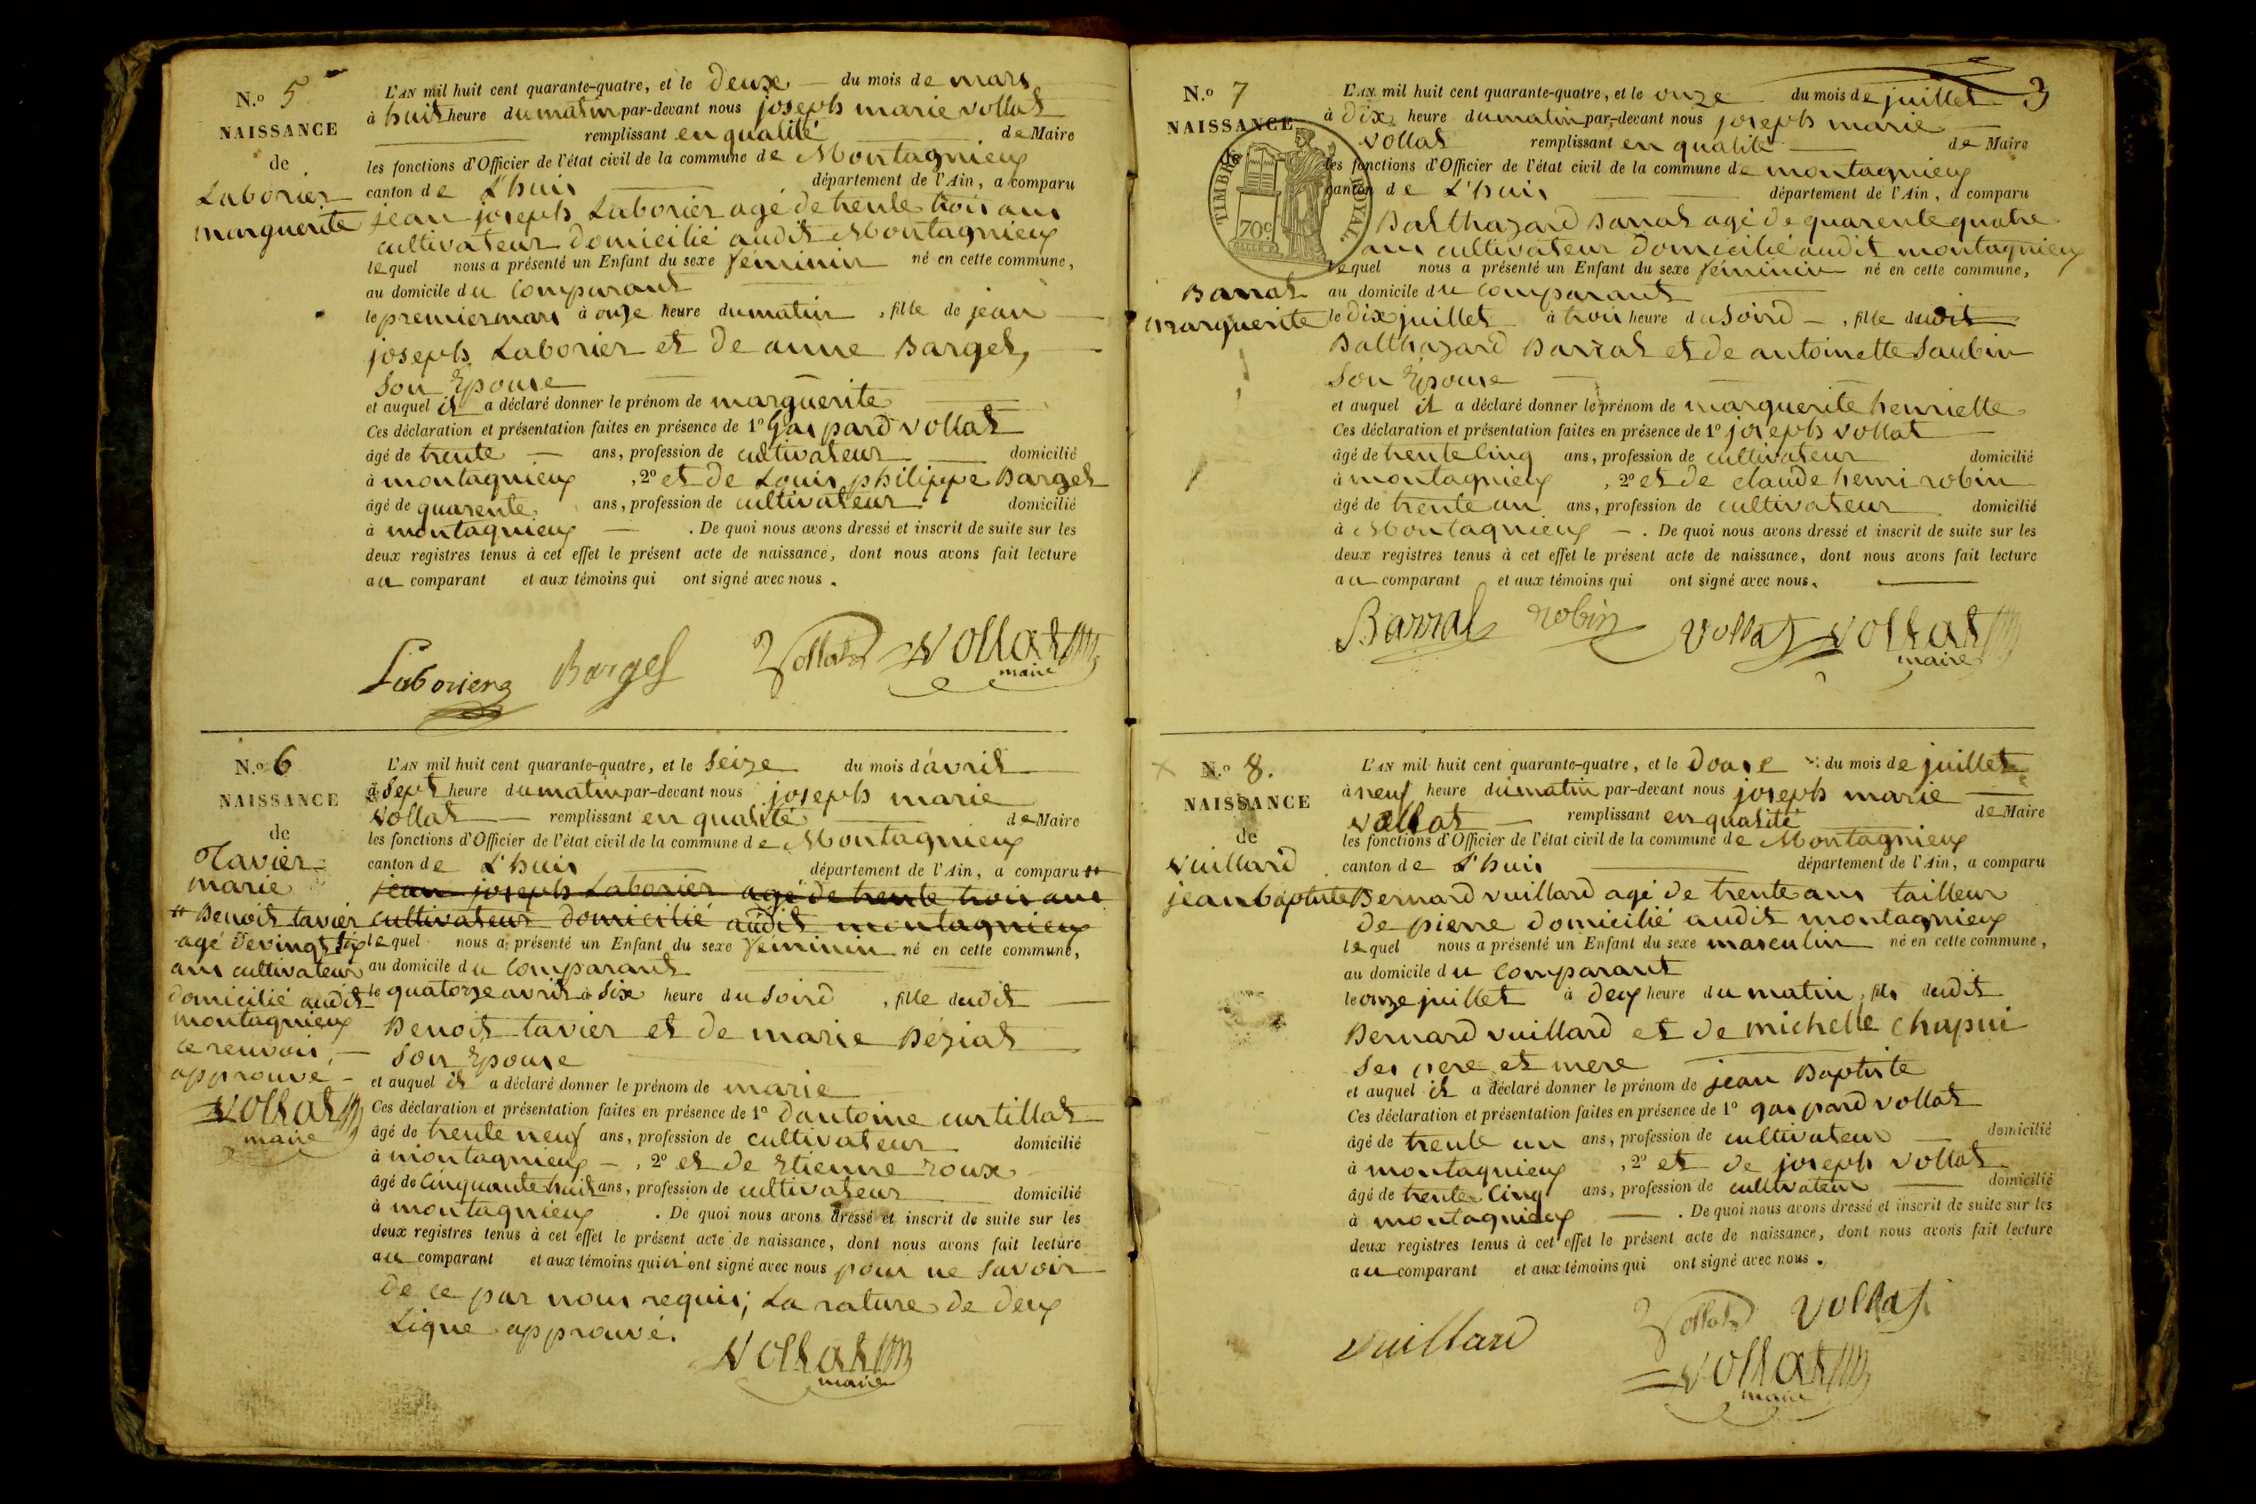 N.o 5
NAISSANCE
de
Laborier
marguerite
L'AN mil huit cent quarante-quatre, et le Deux du mois de mars
à huit heure du matin par-devant nous joseph marie vollat
remplissant en qualité de Maire
les fonctions d'Officier de l'état civil de la commune de Montagnieu
canton de L'huis département de l'Ain, a comparu
jean joseph Laborier agé de trente trois ans
cultivateur domicilié audit Montagnieu
lequel nous a présenté un Enfant du sexe féminin né en cette commune,
au domicile du Comparant
le premier mars à onze heure du matin, fille de jean
joseph Laborier et de anne Barget,
Son Epouse
et auquel il a déclaré donner le prénom de marguerite
Ces déclaration et présentation faites en présence de 1o Gaspard vollat
âgé de trente ans, profession de cultivateur domicilié
à montagnieu, 2o et de Louis philippe Barget
âgé de quarente ans, profession de cultivateur domicilié
à montagnieu. De quoi nous avons dressé et inscrit de suite sur les
deux registres tenus à cet effet le présent acte de naissance, dont nous avons fait lecture
au comparant et aux témoins qui ont signé avec nous.
Laborier Barget Vollat Vollat
maire
N.o 6
NAISSANCE
de
Tavier
marie
Benoit tavier
agé de vingt six
ans cultivateur
domicilié audit
montagnieu
ce renvoi,
approuvé
Vollat
maire
L'AN mil huit cent quarante-quatre, et le Seize du mois d'avril
à Sept heure du matin par-devant nous joseph marie
Vollat remplissant en qualité de Maire
les fonctions d'Officier de l'état civil de la commune de Montagnieu
canton de L'huis département de l'Ain, a comparu
jean joseph Laborier agé de trente trois ans
cultivateur domicilié audit montagnieu
lequel nous a présenté un Enfant du sexe féminin né en cette commune,
au domicile du Comparant
le quatorze avril à Six heure du Soird, fille dudit
Benoit tavier et de marie Béziat
Son Epouse
et auquel il a déclaré donner le prénom de marie
Ces déclaration et présentation faites en présence de 1o dantoine curtillat
âgé de trente neuf ans, profession de cultivateur domicilié
à montagnieu, 2o et de Etienne roux
âgé de Cinquante huit ans, profession de cultivateur domicilié
à montagnieu. De quoi nous avons dressé et inscrit de suite sur les
deux registres tenus à cet effet le présent acte de naissance, dont nous avons fait lecture
au comparant et aux témoins qui n'ont signé avec nous pour ne Savoir
De ce par nous requis; La rature de deux
Ligne approuvé.
Vollat
maire
3
N.o 7
NAISSANCE
TIMBRE ROYAL
70c
Barrat
marguerite
L'AN mil huit cent quarante-quatre, et le onze du mois de juillet
à Dix heure du matin par-devant nous joseph marie
vollat remplissant en qualité de Maire
les fonctions d'Officier de l'état civil de la commune de montagnieu
canton de L'huis département de l'Ain, a comparu
Balthazard Barrat agé de quarente quatre
ans cultivateur domicilié audit montagnieu
lequel nous a présenté un Enfant du sexe féminin né en cette commune,
au domicile du Comparant
le Dix juillet à trois heure du Soird, fille dudit
Balthazard Barrat et de antoinette Saubin
Son Epouse
et auquel il a déclaré donner le prénom de marguerite henriette
Ces déclaration et présentation faites en présence de 1o joseph vollat
âgé de trente Cinq ans, profession de cultivateur domicilié
à montagnieu, 2o et de claude henri robin
âgé de trente un ans, profession de cultivateur domicilié
à Montagnieu. De quoi nous avons dressé et inscrit de suite sur les
deux registres tenus à cet effet le présent acte de naissance, dont nous avons fait lecture
au comparant et aux témoins qui ont signé avec nous.
Barral robin vollat Vollat
maire
N.o 8.
NAISSANCE
de
Vuillard
jean Baptiste
L'AN mil huit cent quarante-quatre, et le Douse du mois de juillet
à neuf heure du matin par-devant nous joseph marie
Vollat remplissant en qualité de Maire
les fonctions d'Officier de l'état civil de la commune de Montagnieu
canton de L'huis département de l'Ain, a comparu
Bernard vuillard agé de trente ans tailleur
De pierre domicilié audit montagnieu
lequel nous a présenté un Enfant du sexe masculin né en cette commune,
au domicile du Comparant
le onze juillet à deux heure du matin, fils dudit
Bernard vuillard et de michelle chapui
Ses pere et mere
et auquel il a déclaré donner le prénom de jean Baptiste
Ces déclaration et présentation faites en présence de 1o gaspard vollat
âgé de trente un ans, profession de cultivateur domicilié
à montagnieu, 2o et de joseph vollat
âgé de trente Cinq ans, profession de cultivateur domicilié
à montagnieu. De quoi nous avons dressé et inscrit de suite sur les
deux registres tenus à cet effet le présent acte de naissance, dont nous avons fait lecture
au comparant et aux témoins qui ont signé avec nous.
Vuillard Vollat Vollat
Vollat
maire